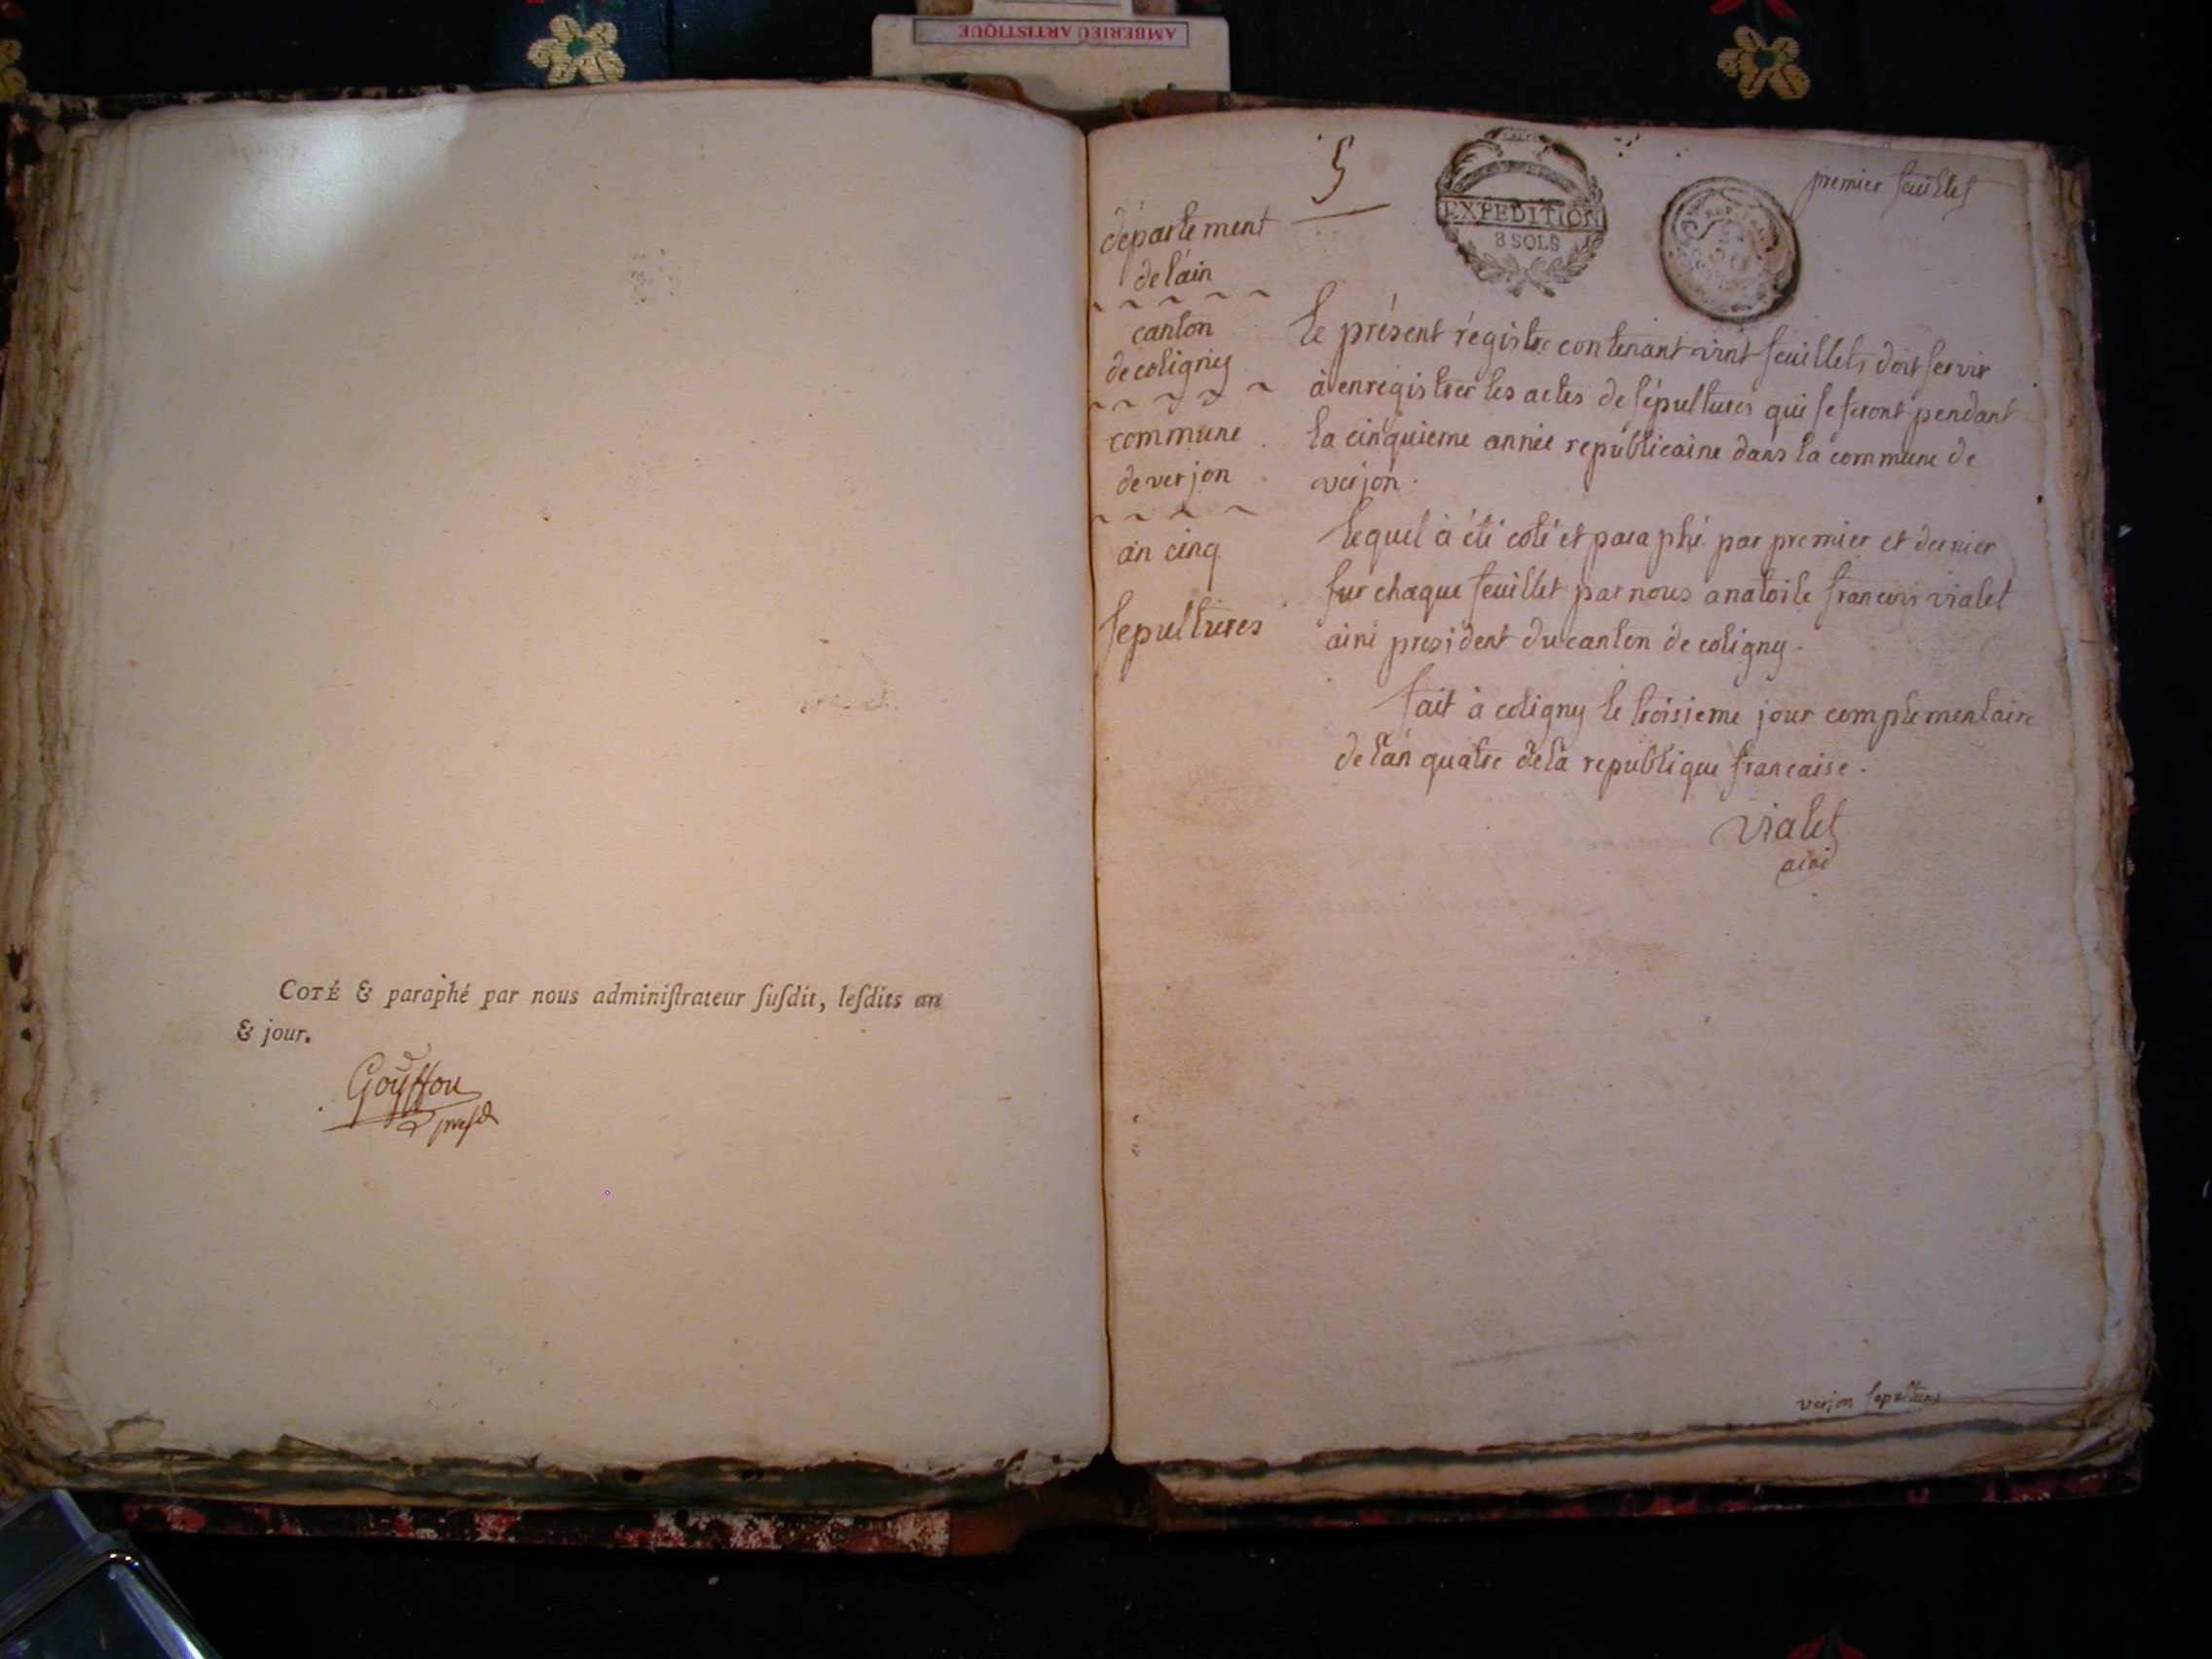 AMBERIEU ARTISTIQUE
COTÉ & paraphé par nous adminiſtrateur ſuſdit, leſdits an
& jour.
Gouffou
presd
5
EXPEDITION
8 SOLS
premier feuillet
département
de l'ain
canton
de coligny
commune
de verjon
an cinq
sepultures
le présent régistre contenant vint feuillets doit servir
à enregistrer les actes de sépultures qui se feront pendant
la cinquieme année republicaine dans la commune de
verjon.
lequel à été coté et paraphé par premier et dernier
sur chaque feuillet par nous anatoile francois vialet
ainé president du canton de coligny.
fait à coligny le troisieme jour complementaire
de l'an quatre de la republique francaise.
vialet
ainé
verjon sepultures